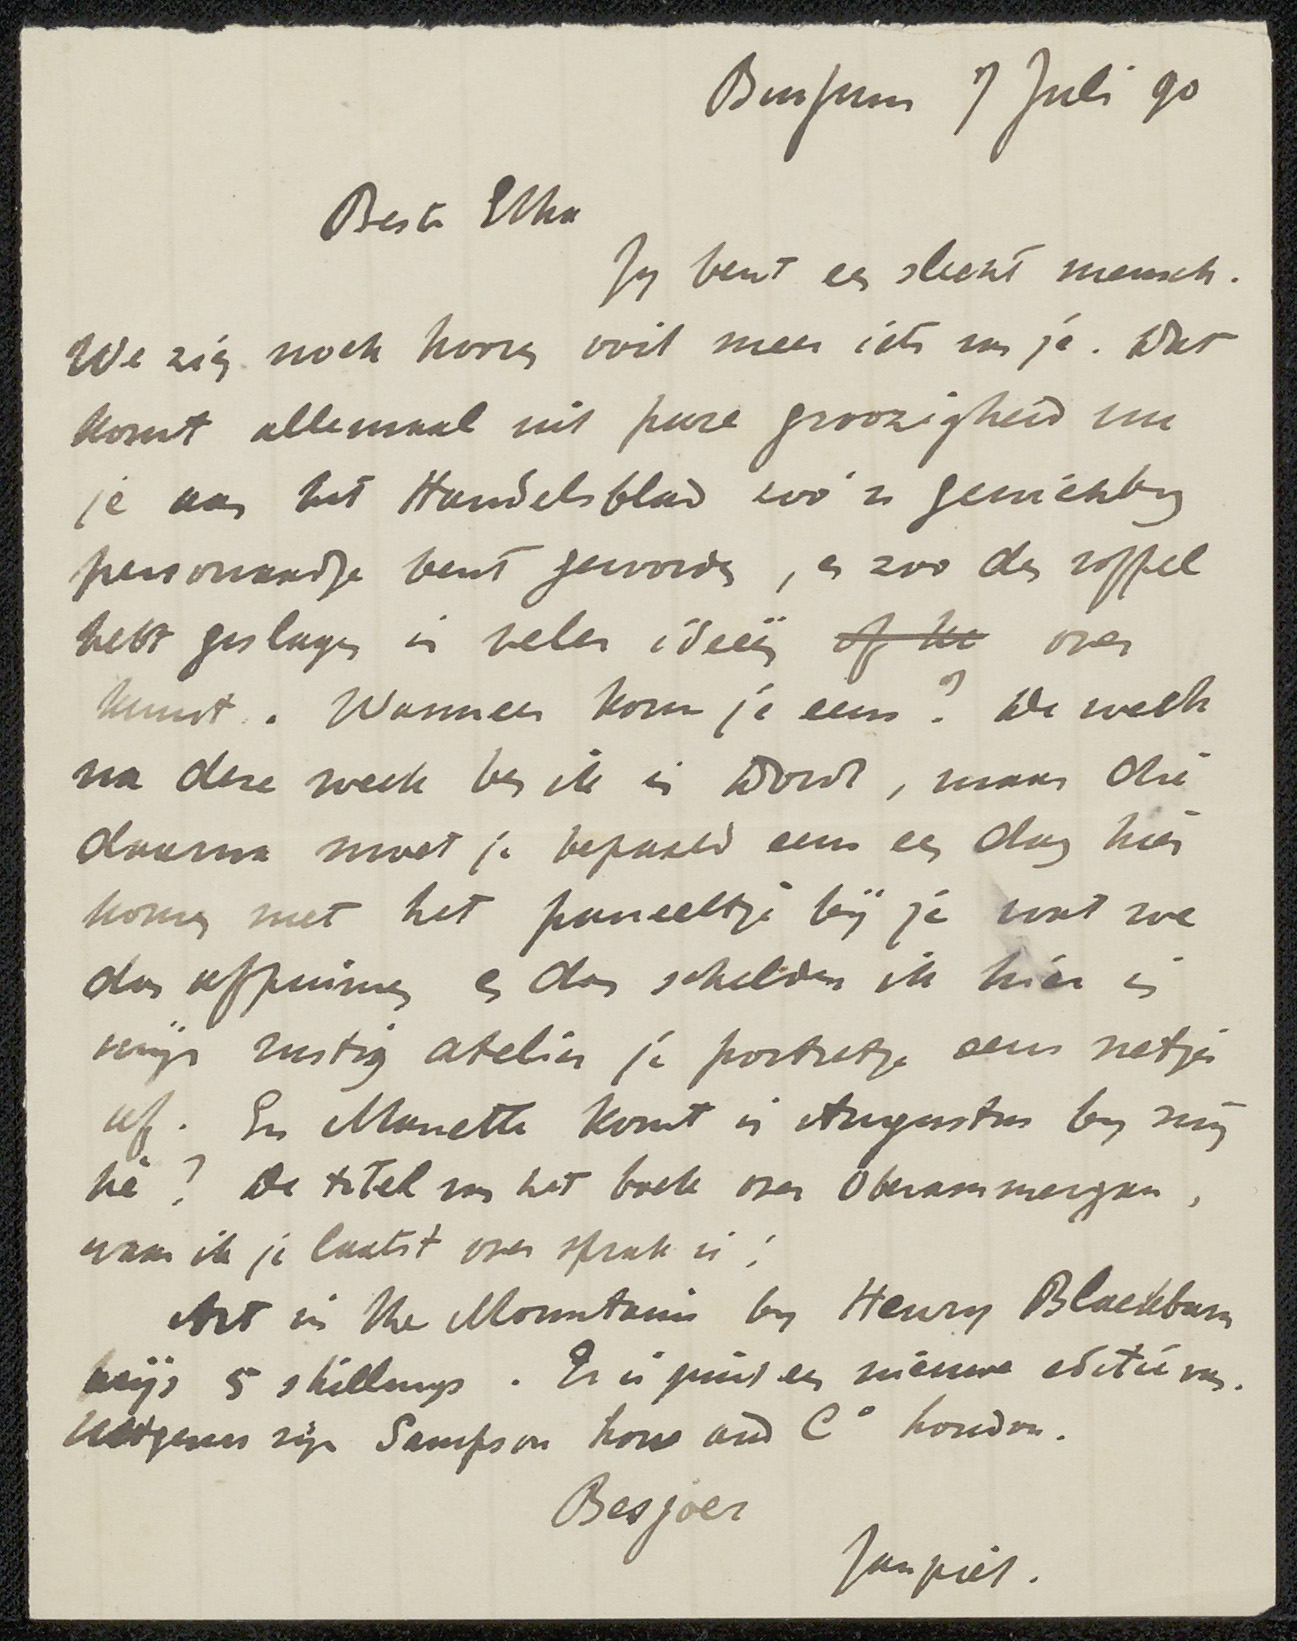 Bussum 7 Juli 90
Beste Etha
Jy bent een slecht mensch.
We zien noch hooren ooit meer iets van je. Dat
komt allemaal uit pure groozigheid nu
je aan het Handelsblad zoo'n gewichtig
personaadje bent geworden, en zoo den roffel
hebt geslagen in veler ideeën of he over
kunst. Wanneer kom je eens? De week
na deze week ben ik in Dordt, maar die
daarna moet je bepaald eens een dag hier
komen met het paneeltje bij je wat we
dan afpuimen en dan schilder ik hier in
mijn rustig atelier je portretje eens netjes
af. En Manette komt in Augustus by mij
hè? De titel van het boek over Oberammergau,
waar ik je laatst over sprak is:
Art in the Mountains by Henry Blackburn
prijs 5 shillings. Er is juist een nieuwe editie van.
Uitgevers zijn Sampson Low and Co London.
Besjoer
Jan piet.